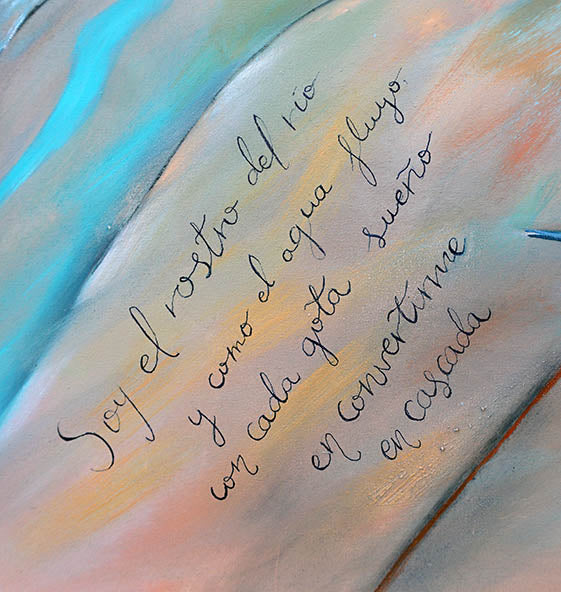 Soy el rostro del rio
y como el agua fluyo.
con cada gota sueño
en convertirme
en cascada